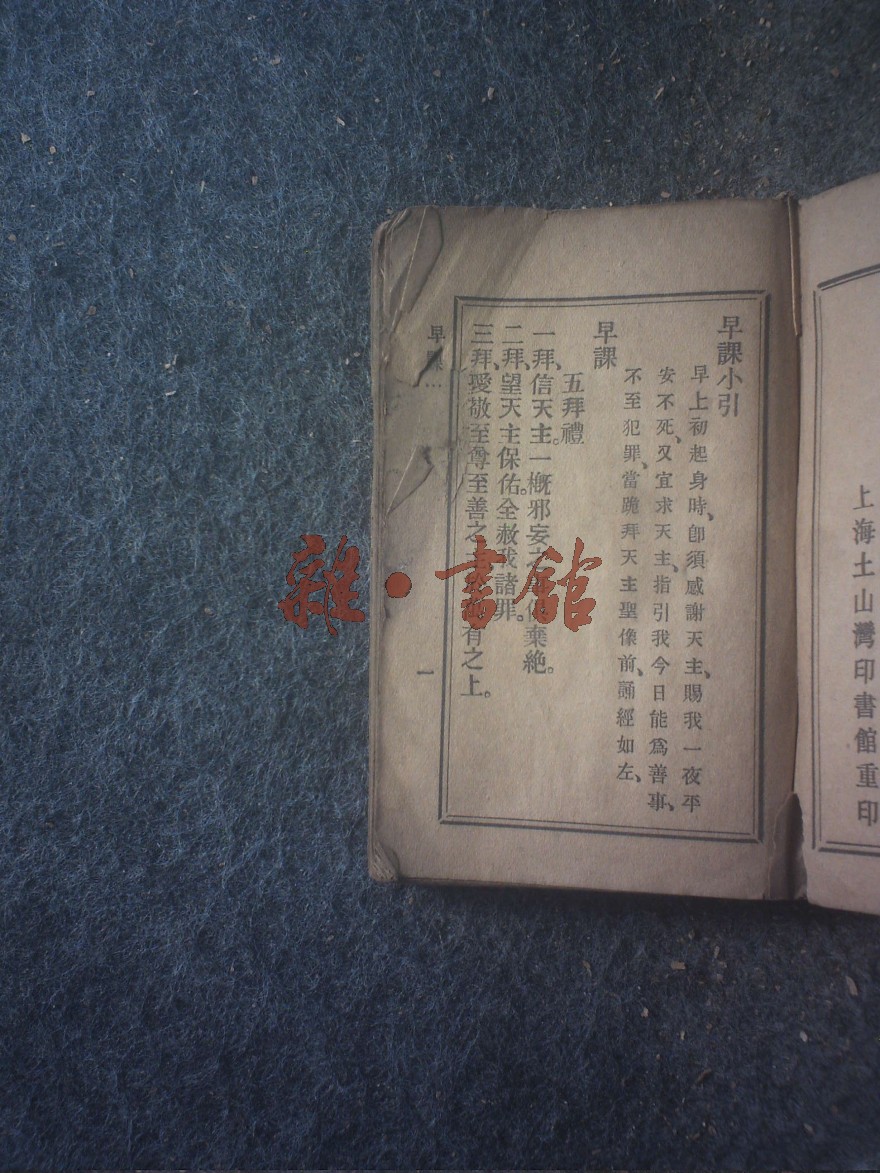 上海土山灣印書館重印
早課小引
早上初起身時、卽須感謝天主、賜我一夜平
安不死、又宜求天主、指引我今日能爲善事、
不至犯罪、當跪拜天主聖像前、誦經如左、
早課
五拜禮
一拜、信天主。一概邪妄之棄絶。
二拜、望天主保佑。全赦我諸罪。
三拜、愛敬至尊至善之有之上。
早課
一
雜·書館